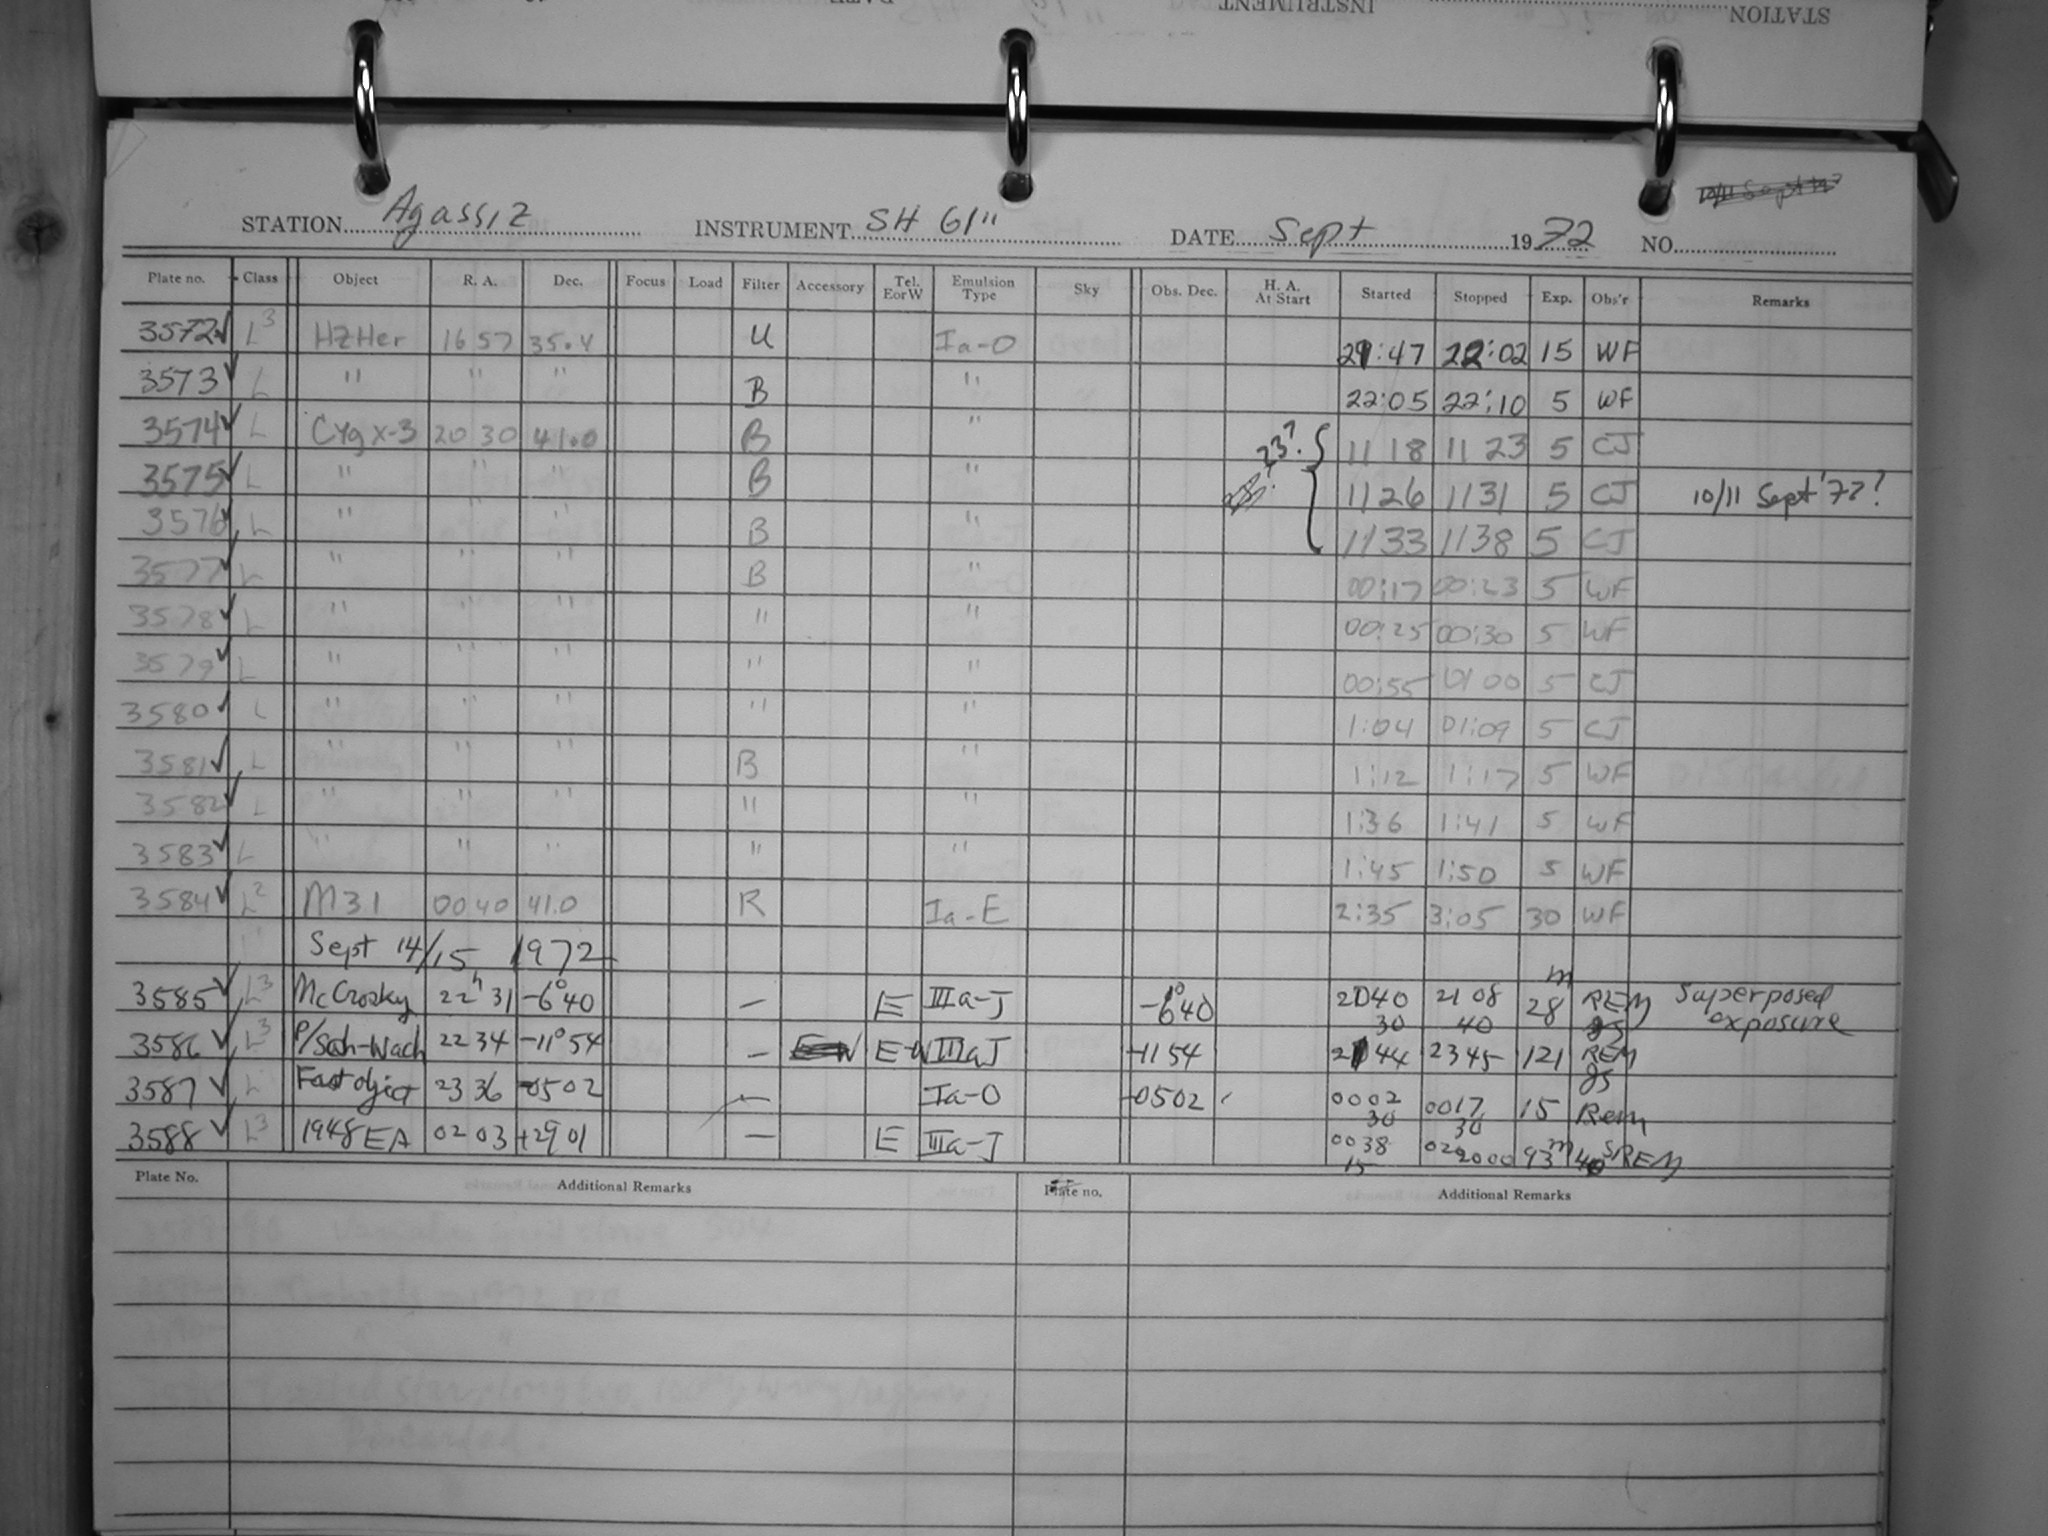 STATION INSTRUMENT
10/11 Sept '72
STATION Agassiz INSTRUMENT SH 61" DATE Sept 1972 NO.
Plate no. Class Object R. A. Dec. Focus Load Filter Accessory Tel. E or W Emulsion Type Sky Obs. Dec. H. A. At Start Started Stopped Exp. Obs'r Remarks
3572 ✓ L3 HZ Her 16 57 35.4 U Ia-O 21:47 22:02 15 WF
3573 ✓ L " " " B " 22:05 22:10 5 WF
3574 ✓ L Cyg X-3 20 30 41.0 B " 23? { 11 18 11 23 5 CJ
3575 ✓ L " " " B " 11 26 11 31 5 CJ 10/11 Sept '72?
3576 ✓ L " " " B " 11 33 11 38 5 CJ
3577 ✓ L " " " B " 00:17 00:23 5 WF
3578 ✓ L " " " " " 00:25 00:30 5 WF
3579 ✓ L " " " " " 00:55 01 00 5 CJ
3580 ✓ L " " " " " 1:04 01:09 5 CJ
3581 ✓ L " " " B " 1:12 1:17 5 WF
3582 ✓ L " " " " " 1:36 1:41 5 WF
3583 ✓ L " " " " " 1:45 1:50 5 WF
3584 ✓ L2 M31 00 40 41.0 R Ia-E 2:35 3:05 30 WF
Sept 14/15 1972
3585 ✓ L3 McCrosky 22h 31 -6°40 — E IIIa-J -6°40 2040 30 21 08 40 28m REM JS Superposed exposure
3586 ✓ L3 P/Sch-Wach 22 34 -11°54 — E-W IIIaJ -11 54 2144 2345 121 REM JS
3587 ✓ L Fast object 23 36 -05 02 — Ia-O -0502 0002 30 0017 30 15 Rem
3588 ✓ L3 1948 EA 02 03 +29 01 — E IIIa-J 0038 15 93m 40s REM
Plate No. Additional Remarks Plate no. Additional Remarks